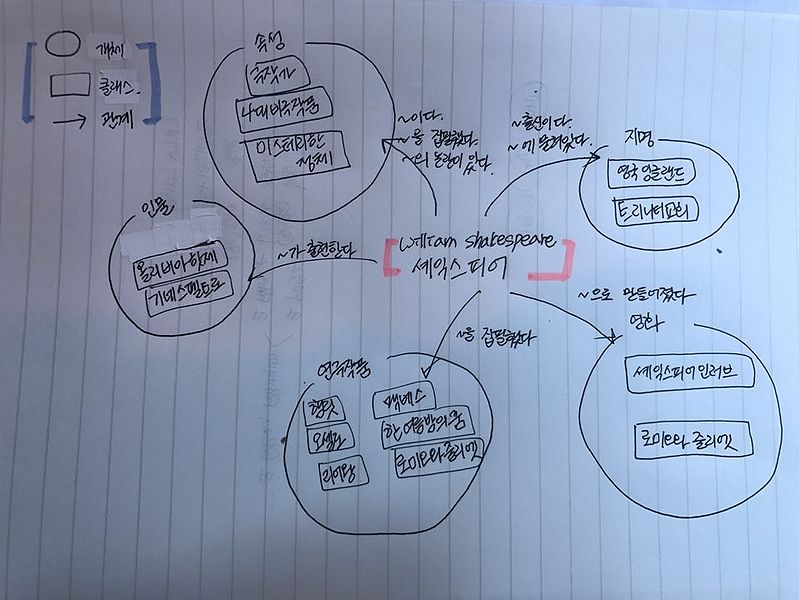 개체
클래스.
관계
속성
극작가
4대비극작품
미스테리한
정체
~이다.
~를 집필했다.
~의 논란이 있다.
~출신이다.
~에 묻혀있다.
지명
영국 잉글랜드
트리니티교회
인물
올리비아 핫세
기네스펠트로
~가 출현한다
William shakespeare
셰익스피어
~를 집필했다
연극작품
햄릿
오셀로
리어왕
맥베스
한여름밤의꿈
로미오와 줄리엣
~으로 만들어졌다
영화
셰익스피어 인 러브
로미오와 줄리엣